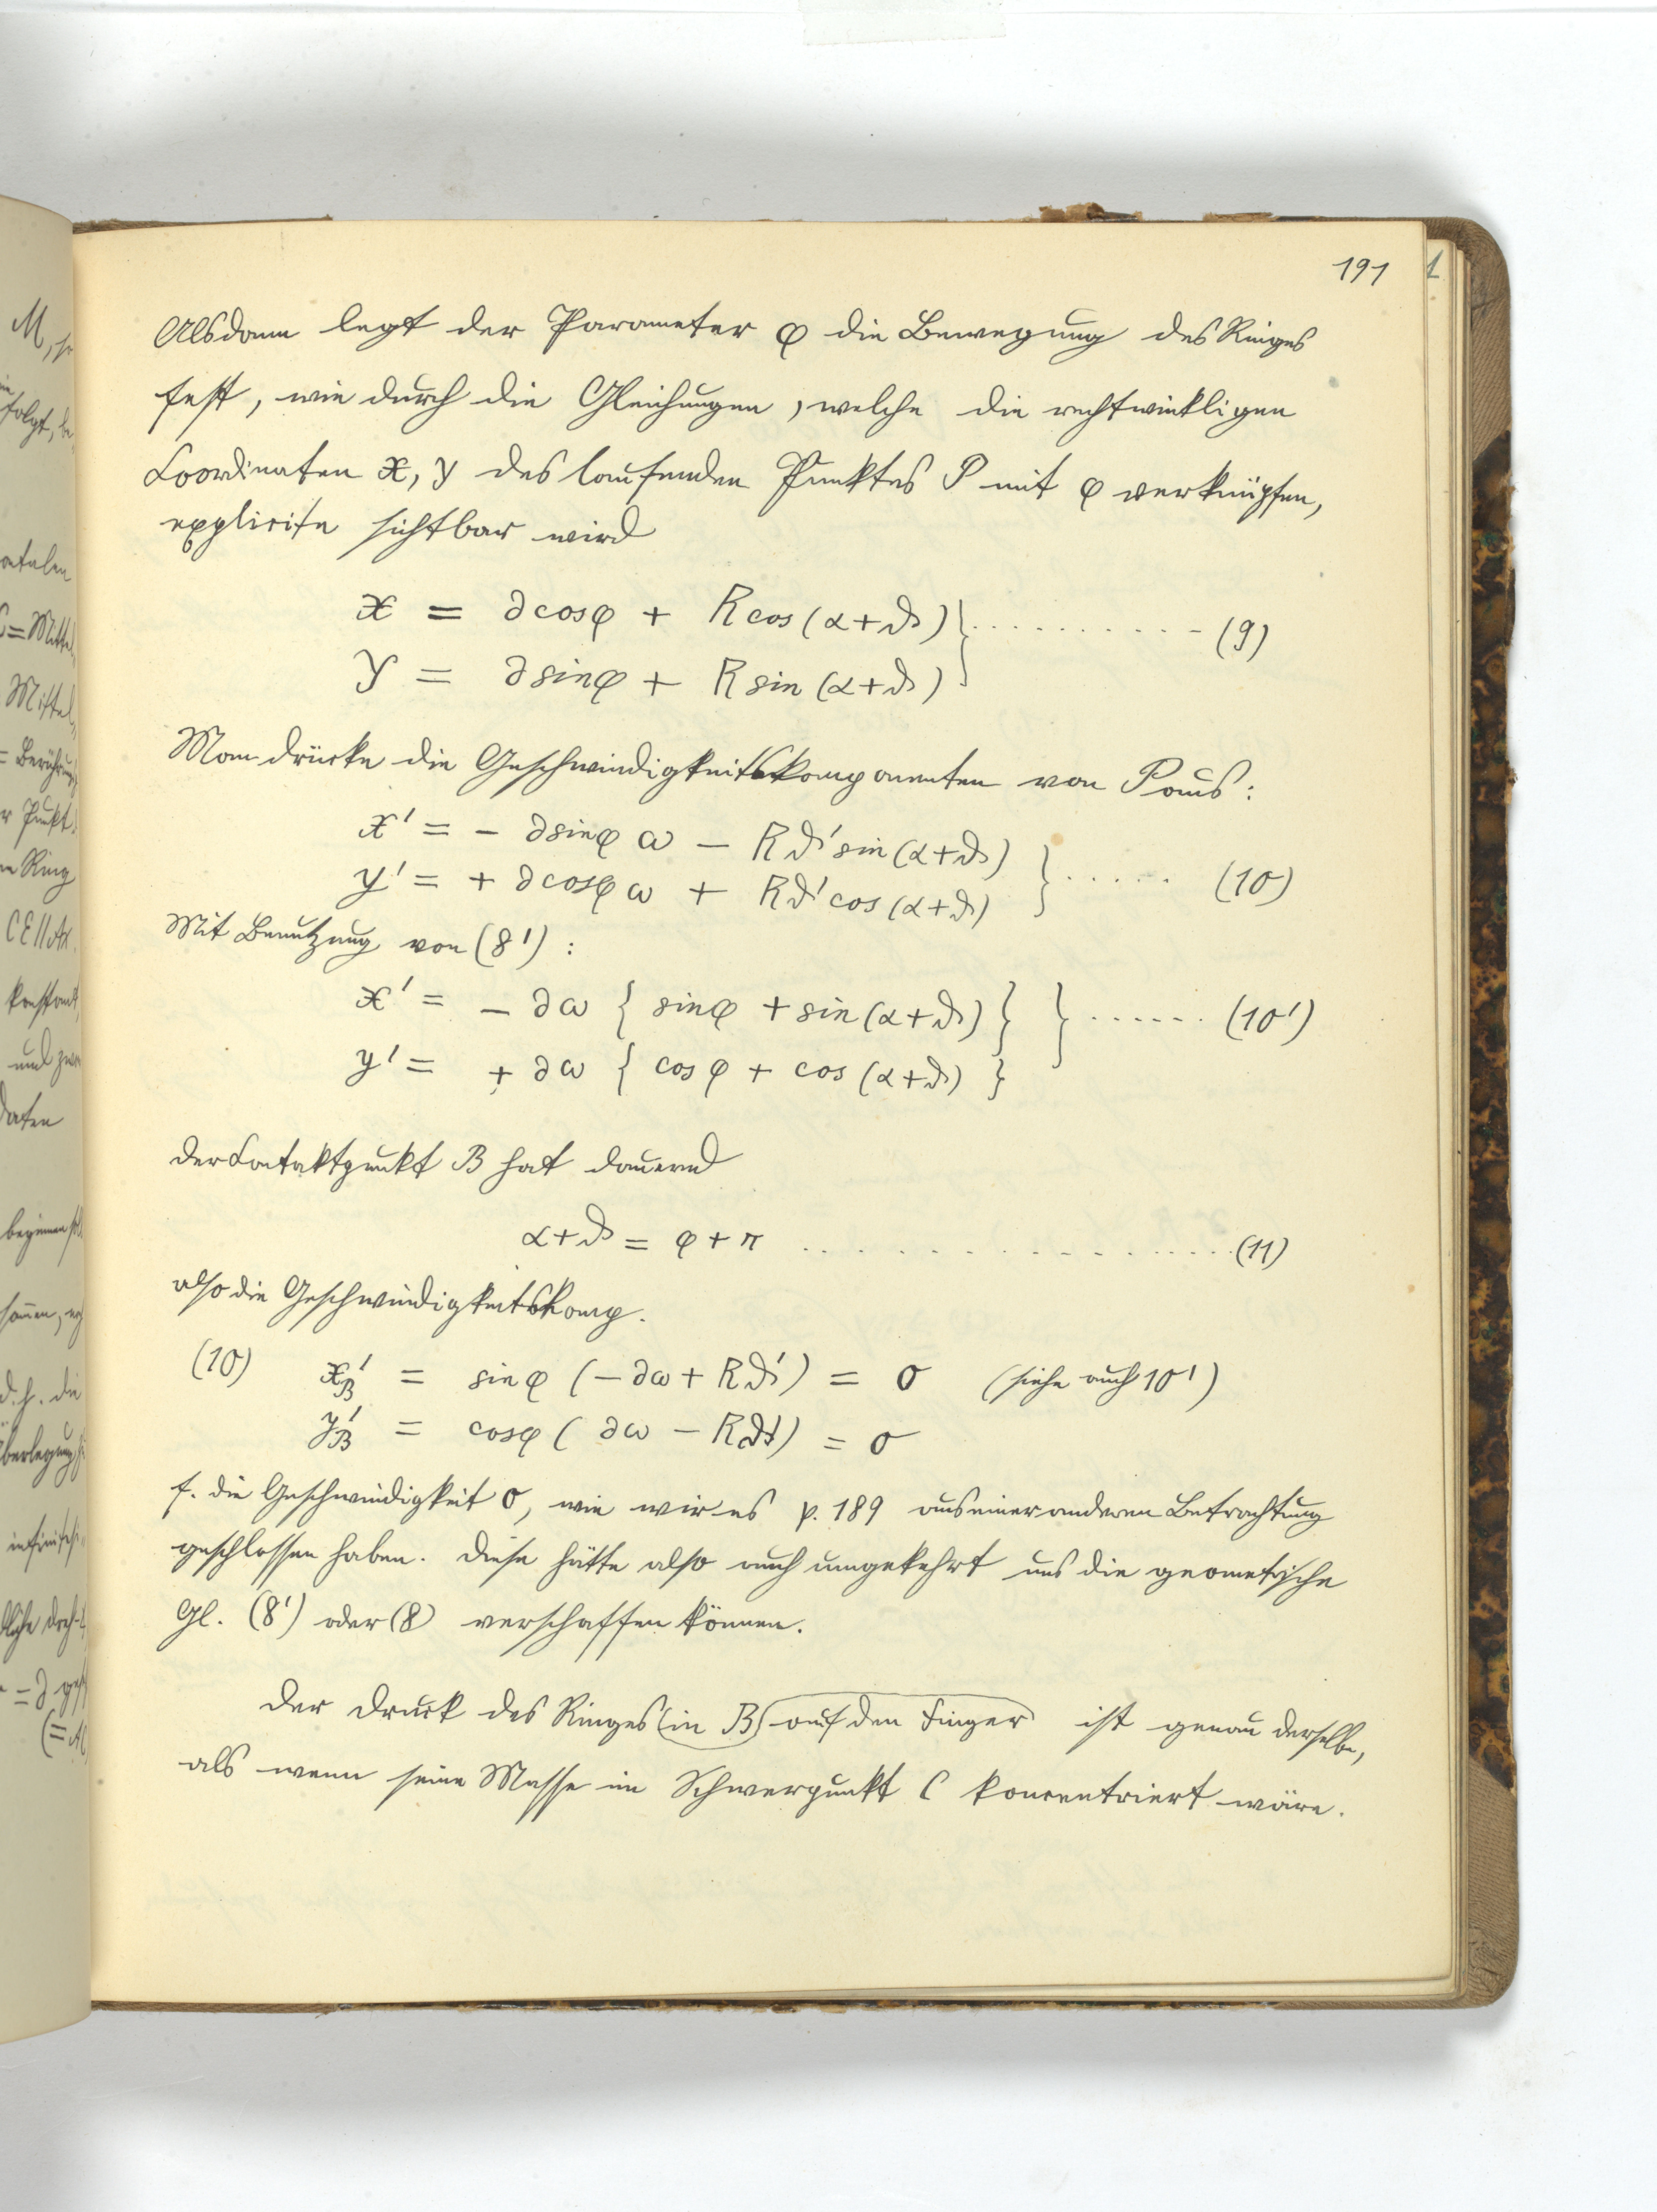 191
Alsdann legt der Parameter φ die Bewegung des Ringes
fest, wie durch die Gleichungen, welche die rechtwinkligen
Coordinaten x, y des laufenden Punktes P mit φ verknüpfen,
explicite sichtbar wird
x = ∂cosφ + Rcos(α+ϑ)
y = ∂sinφ + Rsin(α+ϑ) } .......... (9)
Man drücke die Geschwindigkeitskomponenten von P aus:
x' = − ∂sinφ ω − Rϑ'sin(α+ϑ)
y' = + ∂cosφ ω + Rϑ'cos(α+ϑ) } ..... (10)
Mit Benutzung von (8') :
x' = − ∂ω { sinφ + sin(α+ϑ) }
y' = + ∂ω { cosφ + cos(α+ϑ) } } ...... (10')
der Contaktpunkt B hat dauernd
α+ϑ = φ+π .................. (11)
also die Geschwindigkeitskomp.
(10) x'B = sinφ (−∂ω + Rϑ') = 0 (siehe auch 10')
y'B = cosφ ( ∂ω − Rϑ') = 0
f. die Geschwindigkeit 0, wie wir es p. 189 aus einer anderen Betrachtung
geschlossen haben. Diese hätte also auch umgekehrt uns die geometrische
Gl. (8') oder (8) verschaffen können.
Der Druck des Ringes (in B) auf den Finger ist genau derselbe,
als wenn seine Masse im Schwerpunkt C koncentriert wäre.